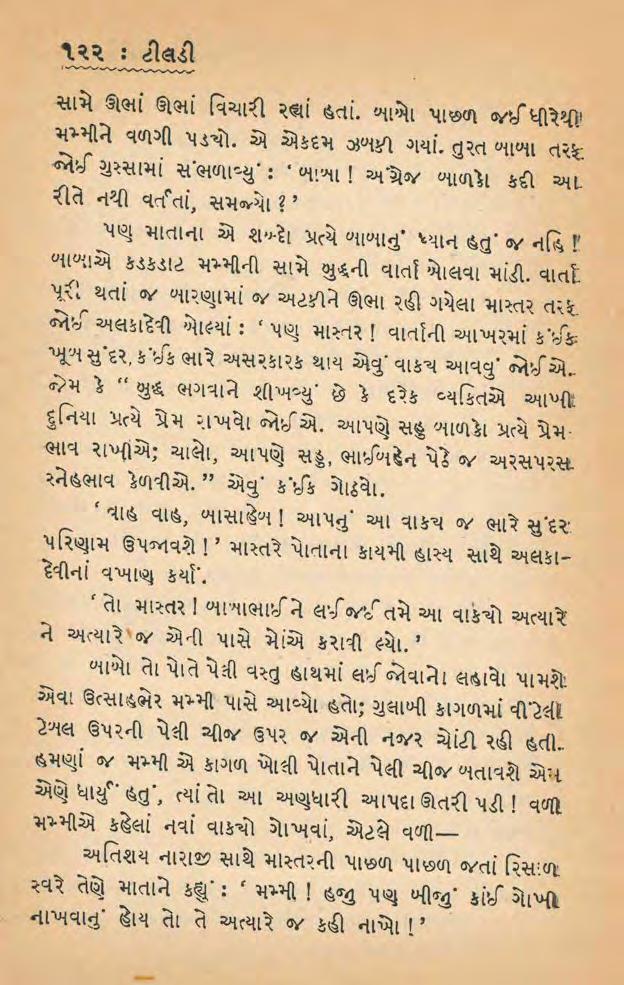 ૧૨૨ : ટીલડી
સામે ઊભાં ઊભાં વિચારી રહ્યાં હતાં. બાબો પાછળ જઈ ધીરેથી
મમ્મીને વળગી પડ્યો. એ એકદમ ઝબકી ગયાં. તુરત બાબા તરફ
જોઈ ગુસ્સામાં સંભળાવ્યું : ‘ બાબા ! અંગ્રેજ બાળકો કદી આ
રીતે નથી વર્તતાં, સમજ્યો ? ’
પણ માતાના એ શબ્દો પ્રત્યે બાબાનું ધ્યાન હતું જ નહિ !
બાબાએ કડકડાટ મમ્મીની સામે બુદ્ધની વાર્તા બોલવા માંડી. વાર્તા
પૂરી થતાં જ બારણામાં જ અટકીને ઊભા રહી ગયેલા માસ્તર તરફ
જોઈ અલકાદેવી બોલ્યાં : ‘ પણ માસ્તર ! વાર્તાની આખરમાં કંઈક
ખૂબ સુંદર, કંઈક ભારે અસરકારક થાય એવું વાક્ય આવવું જોઈએ.
જેમ કે “ બુદ્ધ ભગવાને શીખવ્યું છે કે દરેક વ્યક્તિએ આખી
દુનિયા પ્રત્યે પ્રેમ રાખવો જોઈએ. આપણે સહુ બાળકો પ્રત્યે પ્રેમ-
ભાવ રાખીએ; ચાલો, આપણે સહુ, ભાઈબહેન પેઠે જ અરસપરસ
સ્નેહભાવ કેળવીએ. ” એવું કંઈક ગોઠવો.
‘ વાહ વાહ, બાસાહેબ ! આપનું આ વાક્ય જ ભારે સુંદર
પરિણામ ઉપજાવશે ! ’ માસ્તરે પોતાના કાયમી હાસ્ય સાથે અલકા-
દેવીનાં વખાણ કર્યાં.
‘ તો માસ્તર ! બાબાભાઈને લઈ જઈ તમે આ વાક્યો અત્યારે
ને અત્યારે જ એની પાસે મોંએ કરાવી લ્યો. ’
બાબો તો પોતે પેલી વસ્તુ હાથમાં લઈ જોવાનો લહાવો પામશે
એવા ઉત્સાહભેર મમ્મી પાસે આવ્યો હતો; ગુલાબી કાગળમાં વીંટેલી
ટેબલ ઉપરની પેલી ચીજ ઉપર જ એની નજર ચોંટી રહી હતી.
હમણાં જ મમ્મી એ કાગળ ખોલી પોતાને પેલી ચીજ બતાવશે એમ
એણે ધાર્યું હતું, ત્યાં તો આ અણધારી આપદા ઊતરી પડી ! વળી
મમ્મીએ કહેલાં નવાં વાક્યો ગોખવાં, એટલે વળી—
અતિશય નારાજી સાથે માસ્તરની પાછળ પાછળ જતાં રિસાળ
સ્વરે તેણે માતાને કહ્યું : ‘ મમ્મી ! હજુ પણ બીજું કાંઈ ગોખી
નાખવાનું હોય તો તે અત્યારે જ કહી નાખો ! ’